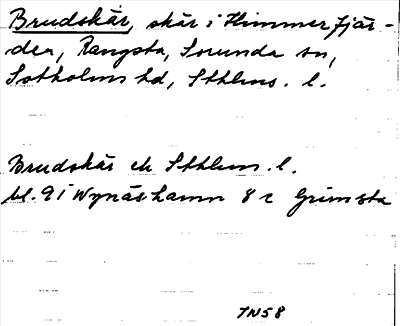 Brudskär, skär i Himmerfjär-
den, Rangsta, Sorunda sn,
Sotholms hd, Sthlms. l.
Brudskär ek Sthlms. l.
bl. 91 Nynäshamn 8 c Grimsta
7N58